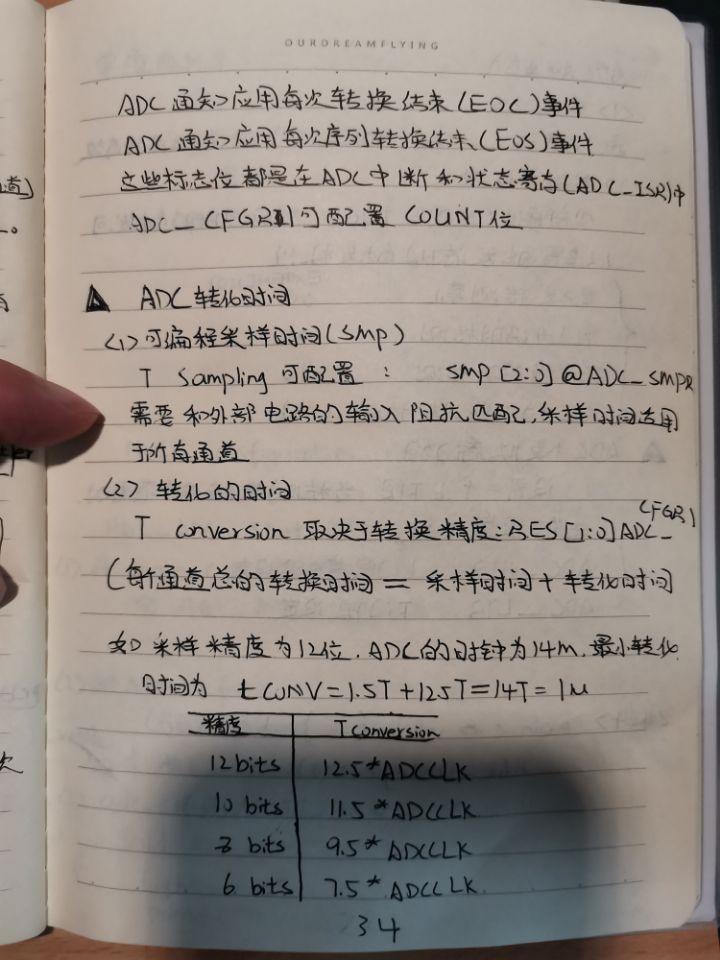 OURDREAMFLYING
ADC 通知应用每次转换结束(EOC)事件
ADC 通知应用每次序列转换结束(EOS)事件
这些标志位都是在ADC中断和状态寄存(ADC_ISR)中
ADC_CFGR1可配置 COUNT位
ADC 转化时间
(1) 可编程采样时间(SMP)
T Sampling 可配置 : SMP [2:0] @ADC_SMPR
需要和外部电路的输入阻抗匹配,采样时间适用
于所有通道
(2) 转化的时间
T conversion 取决于转换精度:RES [1:0] ADC_CFGR1
(每个通道总的转换时间 = 采样时间+转化时间
如 采样精度为12位. ADC的时钟为14M, 最小转化
时间为 tCONV=1.5T+12.5T=14T=1M
精度 Tconversion
12bits 12.5*ADCCLK
10 bits 11.5*ADCCLK
8 bits 9.5*ADCCLK
6 bits 7.5*ADCCLK
34